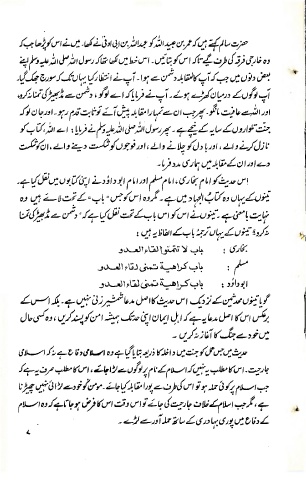 حضرت سالم کہتے ہیں کہ عمر بن عبید اللہ کو عبد اللہ بن ابی اوفیٰ نے لکھا۔ میں نے اس کو پڑھا جب کہ
وہ خارجی فرقہ کی طرف گئے تاکہ اس کو بتائیں۔ اس خط میں لکھا تھا کہ رسول اللہ صلی اللہ علیہ وسلم اپنے
بعض دنوں میں جب کہ آپ کا مقابلہ دشمن سے ہوا۔ آپ نے انتظار کیا یہاں تک کہ سورج جھک گیا،
آپ لوگوں کے درمیان کھڑے ہوئے۔ آپ نے فرمایا کہ اے لوگو، دشمن سے مڈبھیڑ کی تمنا نہ کرو،
اور اللہ سے عافیت مانگو۔ پھر جب ان سے تمہارا مقابلہ پیش آئے تو ثابت قدم رہو۔ اور جان لو کہ
جنت تلواروں کے سایہ کے نیچے ہے۔ پھر رسول اللہ صلی اللہ علیہ وسلم نے فرمایا : اے اللہ، کتاب کو
نازل کرنے والے، اور بادل کو چلانے والے، اور فوجوں کو شکست دینے والے، ان کو شکست
دے اور ان کے مقابلہ میں ہماری مدد فرما۔
اس حدیث کو امام بخاری، امام مسلم اور امام ابو داؤد نے اپنی کتابوں میں نقل کیا ہے۔
تینوں کے یہاں وہ کتاب الجہاد میں ہے۔ مگر وہ اس کو جس "باب" کے تحت لائے ہیں وہ
نہایت بامعنی ہے۔ تینوں نے اس کو اس باب کے تحت نقل کیا ہے کہ "دشمن سے مڈبھیڑ کی تمنا
نہ کرو" تینوں کے یہاں ترجمۂ باب کے الفاظ یہ ہیں :
بخاری : باب لا تتمنوا لقاء العدو
مسلم : باب كراهية تمنى لقاء العدو
ابو داؤد : باب كراهية تمنى لقاء العدو
گویا تینوں محدثین کے نزدیک اس حدیث کا اصل مدعا شمشیر زنی نہیں ہے۔ بلکہ اس کے
برعکس اس کا اصل مدعا یہ ہے کہ اہل ایمان اپنی حد تک ہمیشہ امن کو پسند کریں، وہ کسی حال
میں خود سے جنگ کا آغاز نہ کریں۔
حدیث میں جس عمل کو جنت میں داخلہ کا ذریعہ بتایا گیا ہے وہ اسلامی دفاع ہے نہ کہ اسلامی
جارحیت۔ اس کا مطلب یہ نہیں کہ اسلام کے نام پر لوگوں سے لڑا جائے، اس کا مطلب صرف یہ ہے کہ
جب اسلام پر کوئی حملہ ہو تو اس کی طرف سے پورا مقابلہ کیا جائے۔ مومن کو خود سے لڑائی نہیں چھیڑنا
ہے، مگر جب اسلام کے خلاف جارحیت کی جائے تو اس وقت اس کا فرض ہو جاتا ہے کہ وہ اسلام
کے دفاع میں پوری بہادری کے ساتھ حملہ آور سے لڑے۔
۷